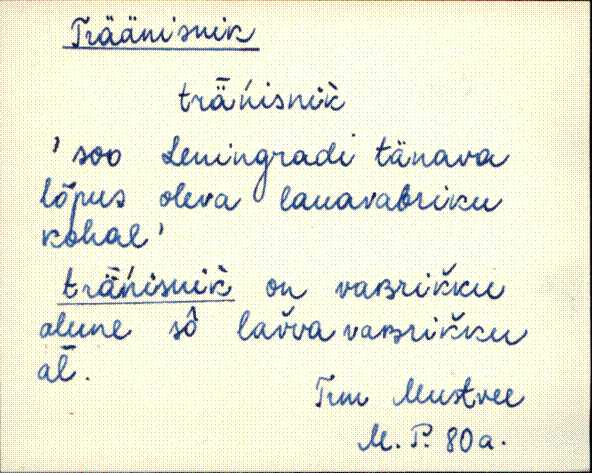 Träänisnik
trǟńisnik̀
' soo Leningradi tänava
lõpus oleva lauavabriku
kohal '
trǟńisnik̀ on vaʙrik̆ku
alune sô lav̆va vaʙrik̆ku
al̄.
Trm Mustvee
M. P. 80 a.